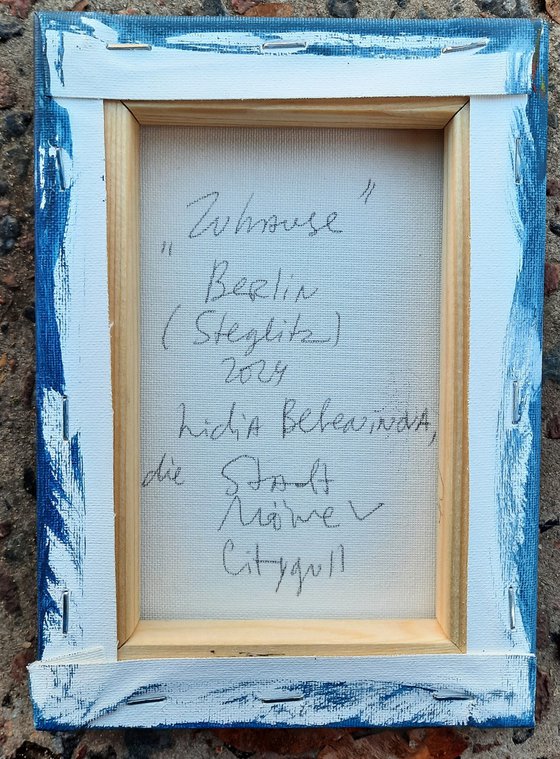 „Zuhause”
Berlin
(Steglitz)
2024
Lidia Beleninova,
die Stadt
Möwe
Citygull